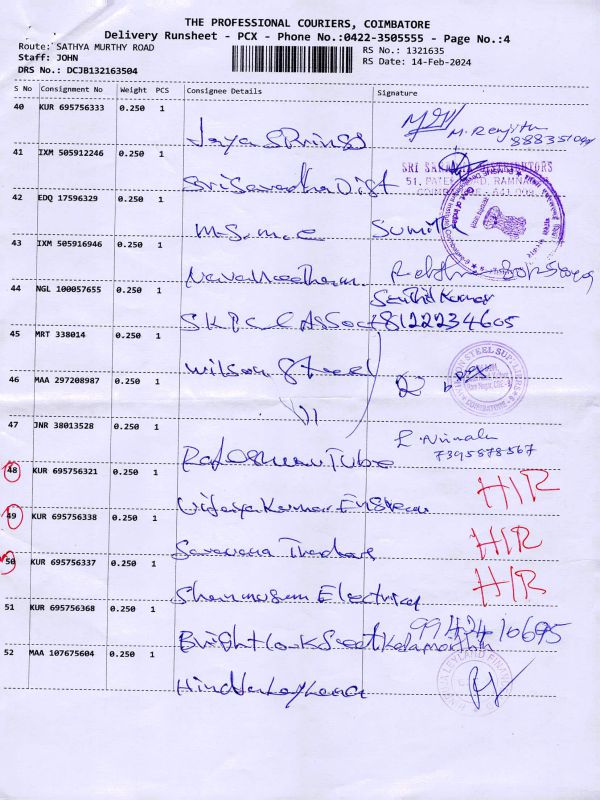 THE PROFESSIONAL COURIERS, COIMBATORE
Delivery Runsheet - PCX - Phone No.:0422-3505555 - Page No.:4
Route: SATHYA MURTHY ROAD
RS No.: 1321635
Staff: JOHN
RS Date: 14-Feb-2024
DRS No.: DCJB132163504
S No Consignment No Weight PCS Consignee Details Signature
40 KUR 695756333 0.250 1
Jaya Springs M. Renjith
41 IXM 505912246 0.250 1
SRI DISTRIBUTORS
Sri Saradha Dist
42 EDQ 17596329 0.250 1
M.S.M.E Sumithr
43 IXM 505916946 0.250 1
Navaneetham
44 NGL 100057655 0.250 1
Senthil Kumar
SKPC & Assoc 8122234605
45 MRT 338014 0.250 1
Wilson Steel
STEEL SUPPLIERS
COIMBATORE
46 MAA 297208987 0.250 1
)1
47 JNR 38013528 0.250 1
Tube
7395878567
48 KUR 695756321 0.250 1
Vijaya Kumar H1R
49 KUR 695756338 0.250 1
Saravana H1R
50 KUR 695756337 0.250 1
Shanmugam Electrical H1R
51 KUR 695756368 0.250 1
9942410695
Bright
52 MAA 107675604 0.250 1
Hinduja Leyland